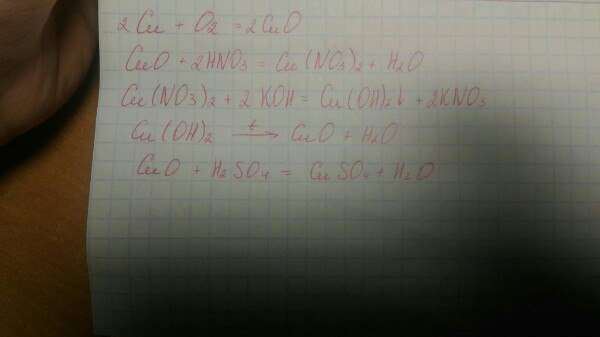 2Cu + O2 = 2CuO
CuO + 2HNO3 = Cu(NO3)2 + H2O
Cu(NO3)2 + 2KOH = Cu(OH)2↓ + 2KNO3
Cu(OH)2 t→ CuO + H2O
CuO + H2SO4 = CuSO4 + H2O